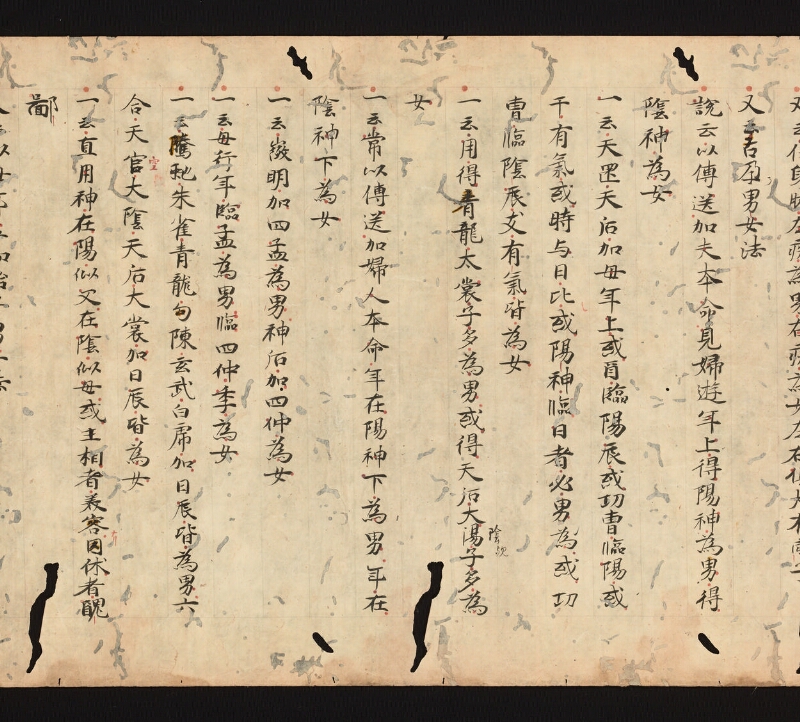 又云占孕男女法
説云以傳送加夫本命見婦遊年上得陽神為男得
陰神為女
一云天罡天后加毋年上或酉臨陽辰或功曹臨陽或
干有氣或時与日比或陽神臨日者必男為或功
曹臨陰辰支有氣皆為女
一云用得青龍太裳子多為男或得天后大陽子多為
陰歟
女
一云常以傳送加婦人本命年在陽神下為男年在
陰神下為女
一云徴明加四孟為男神后加四仲為女
一云毋行年臨孟為男臨四仲季為女
一云騰虵朱雀青龍勾陳玄武白帍加日辰皆為男六
合天官大陰天后大裳加日辰皆為女
空
一云直用神在陽似父在陰似毋或主相者美容囙休者醜
鄙